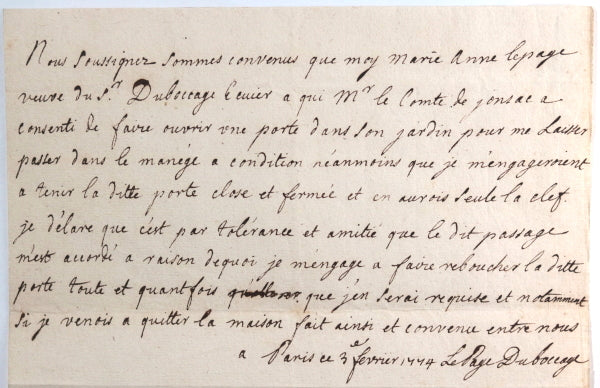 Nous soussignez sommes convenus que moy Marie Anne lepage
veuve du S.r Duboccage Ecuier a qui Mr le Comte de jonsac a
consenti de faire ouvrir une porte dans son jardin pour me Laisser
passer dans le manége a condition néanmoins que je m'engageroient
a tenir la ditte porte close et fermée et en aurois seule la clef.
je d'élare que c'ést par tolérance et amitié que le dit passage
m'est accordé a raison dequoi je m'éngage a faire reboucher la ditte
porte toute et quantfois que j'en serai requise et notamment
si je venois a quitter la maison fait ainsi et convenu entre nous
a Paris ce 3e fevrier 1774 LePage Duboccage